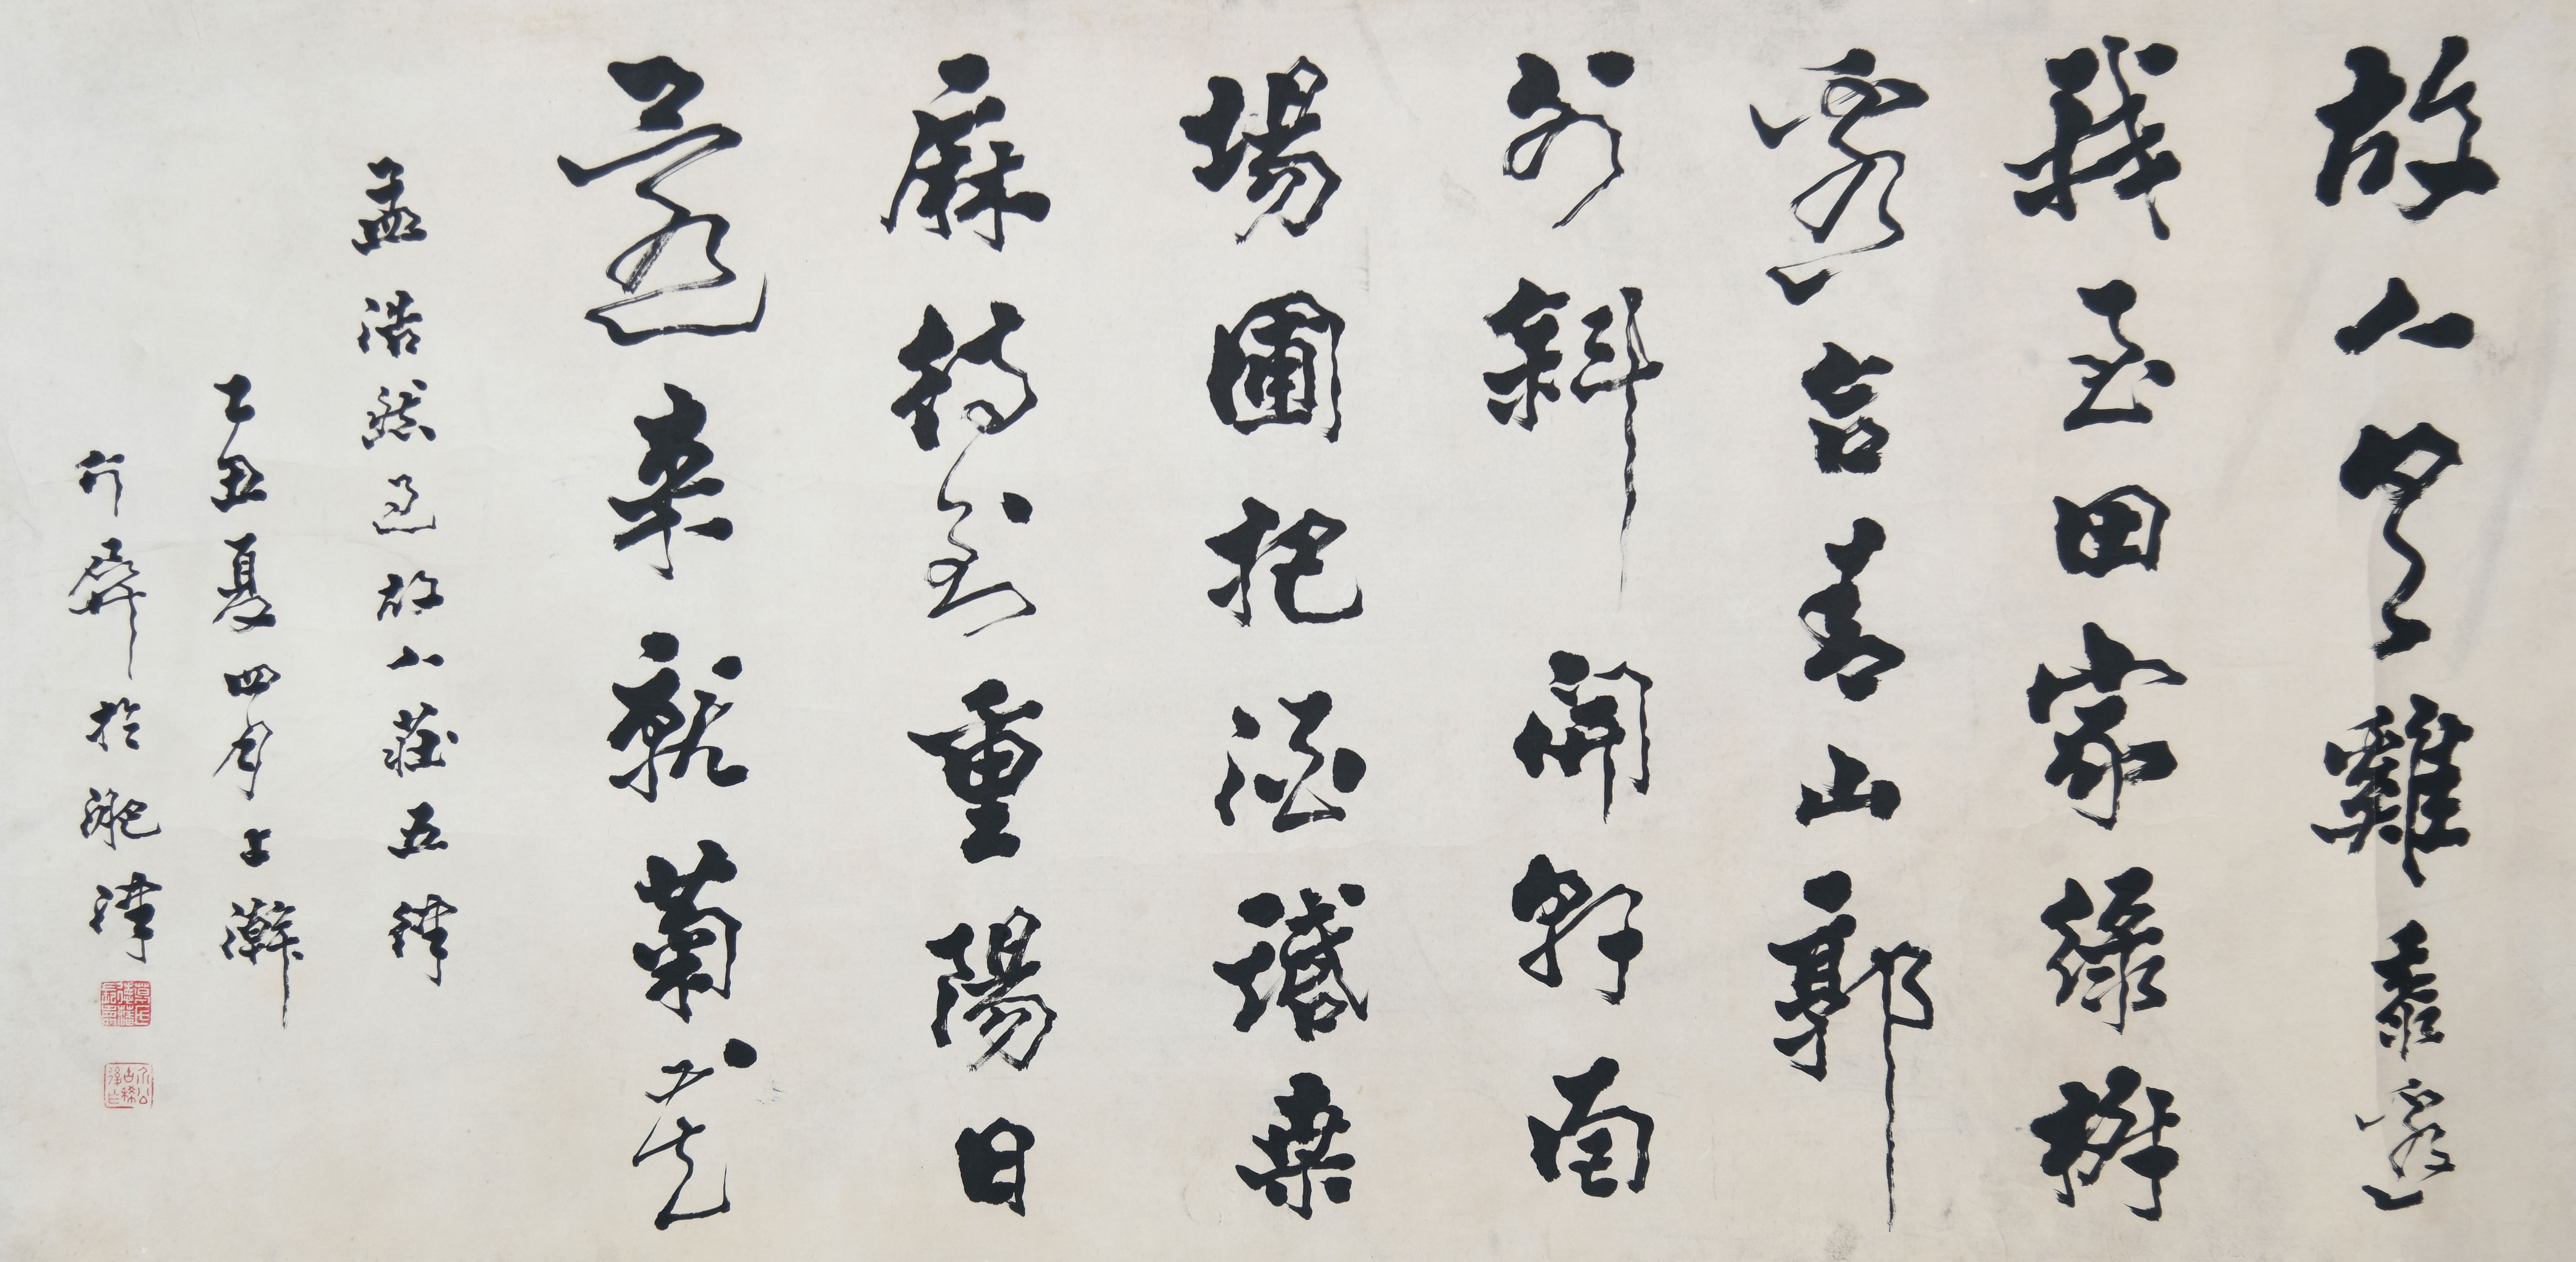 故人具雞黍邀
我至田家綠樹
邊合青山郭
外斜開軒面
場圃把酒話桑
麻待到重陽日
還來就菊花
孟浩然過故人莊五律
乙丑夏四月上澣
於